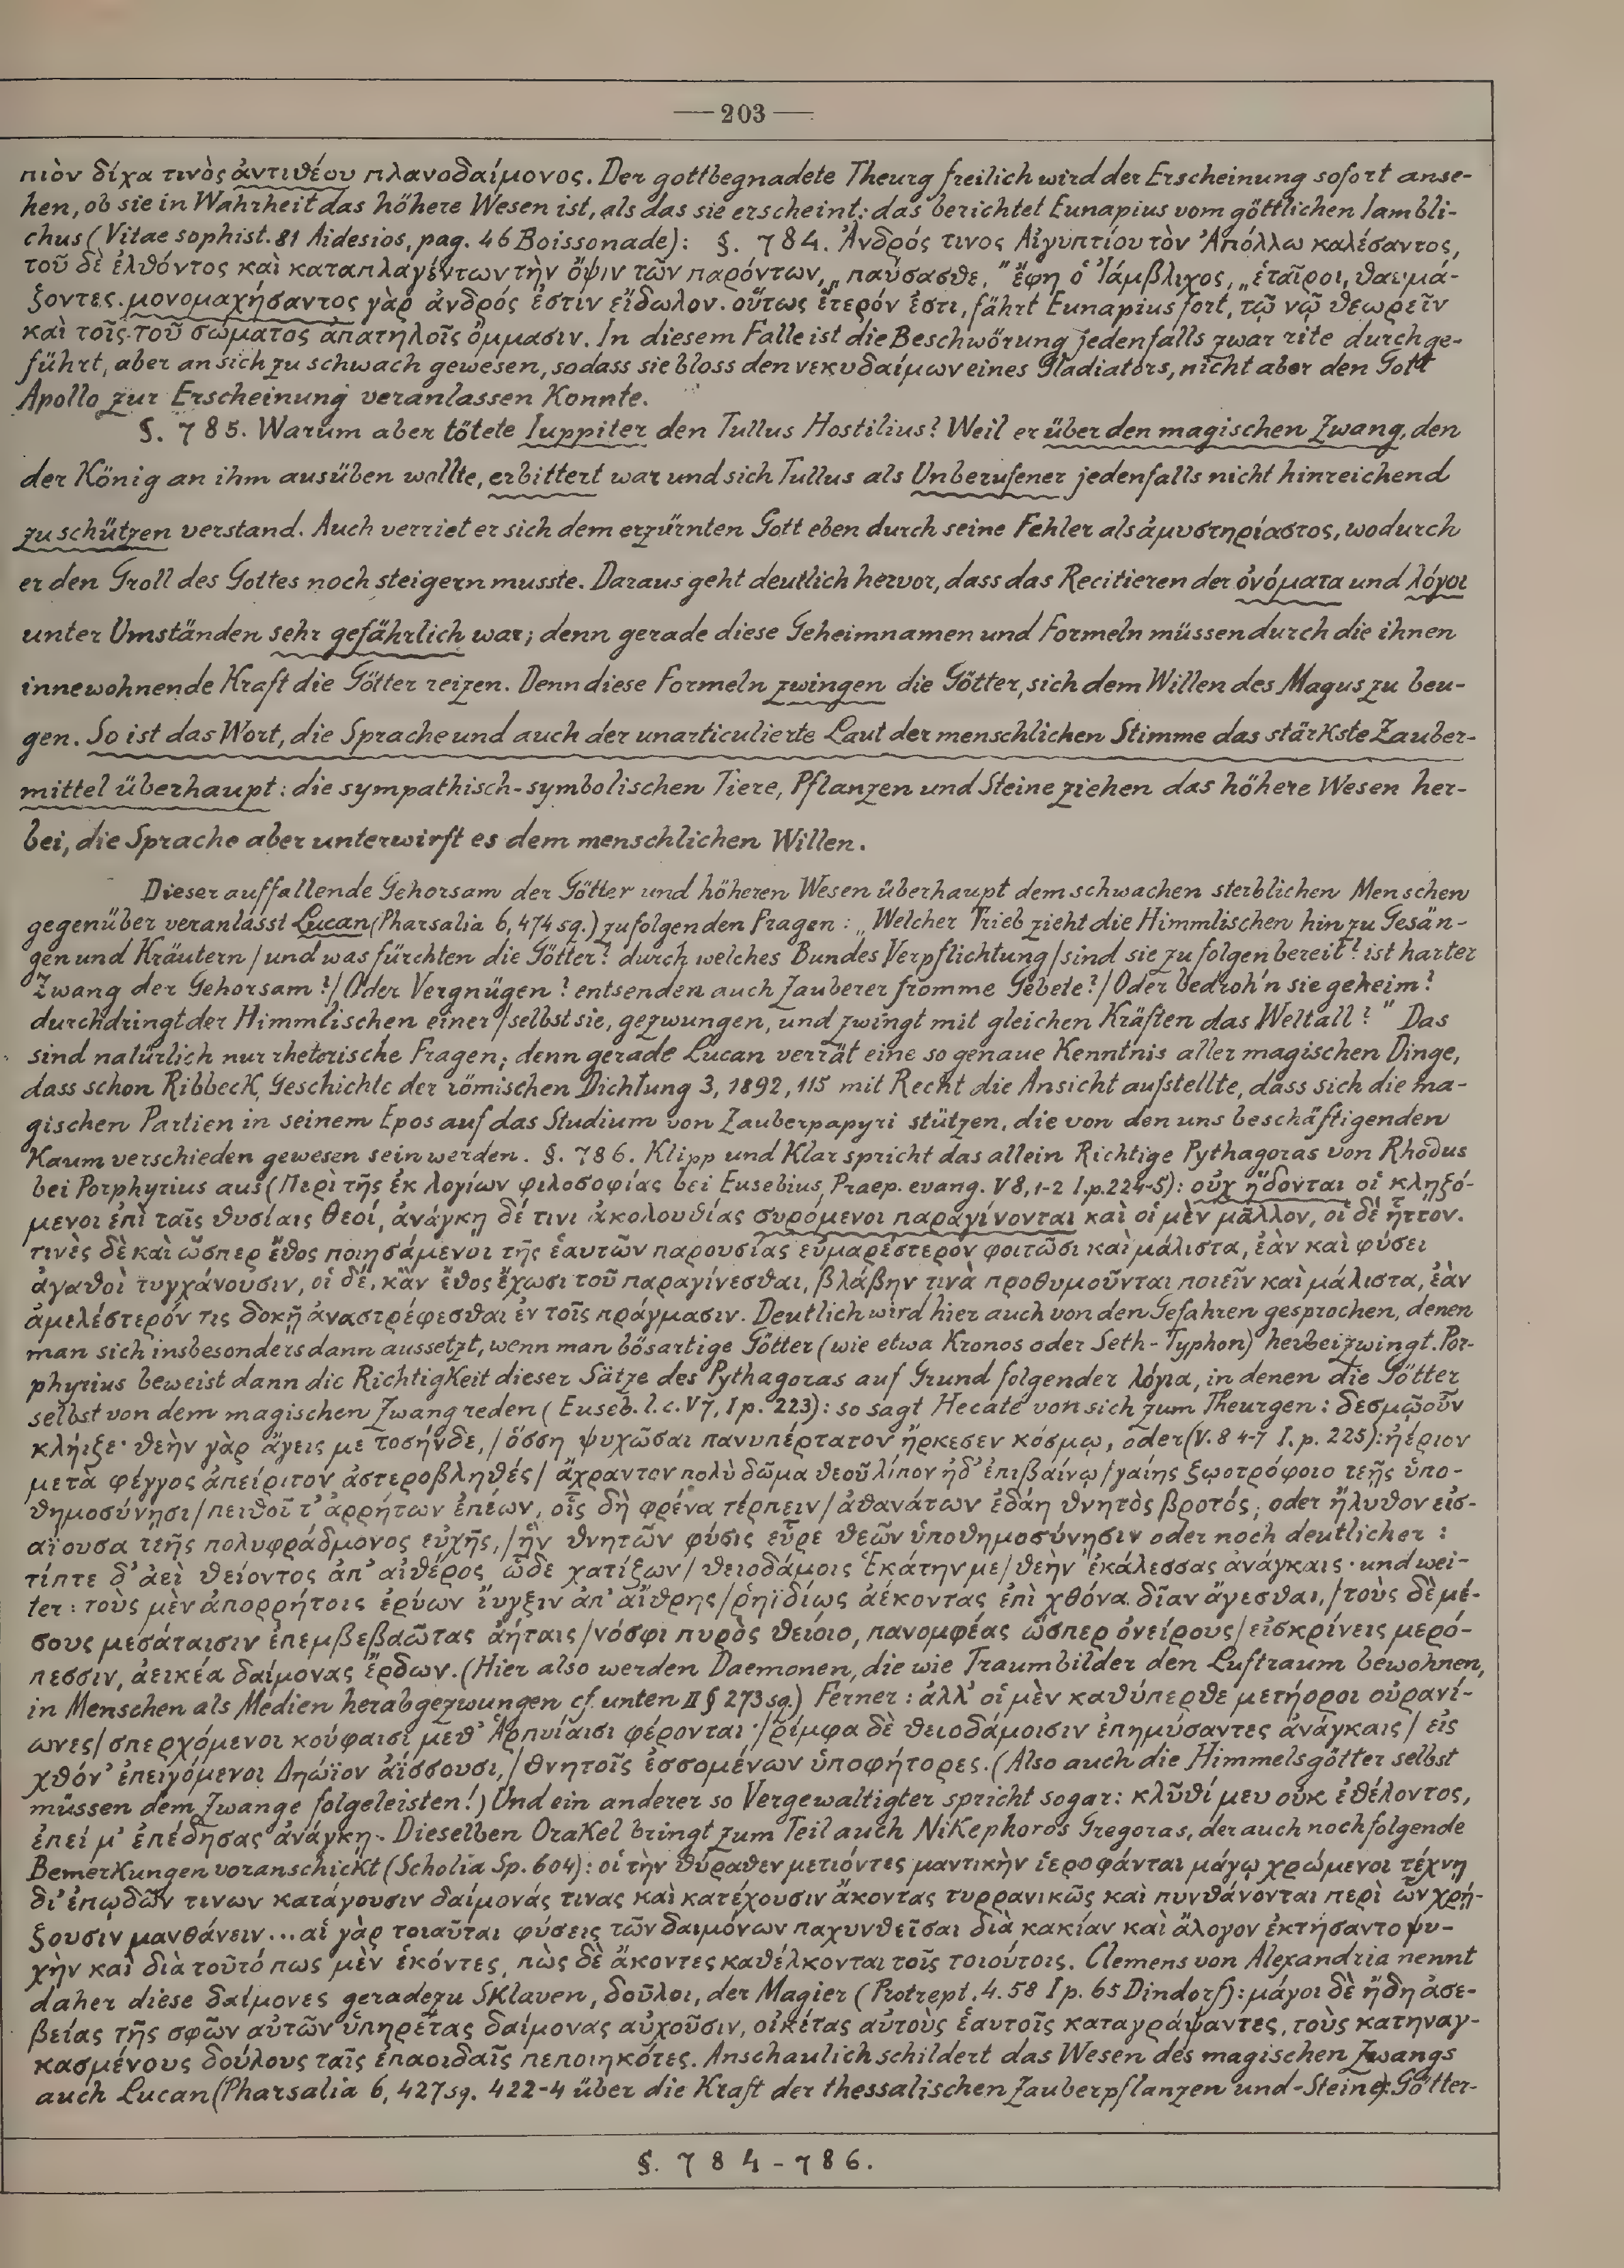 — 203 —
πιὸν δίχα τινὸς ἀντιθέου πλανοδαίμονος. Der gottbegnadete Theurg freilich wird der Erscheinung sofort anse-
hen, ob sie in Wahrheit das höhere Wesen ist, als das sie erscheint: das berichtet Eunapius vom göttlichen Iambli-
chus (Vitae sophist. 81 Aidesios, pag. 46 Boissonade): §. 784. Ἀνδρός τινος Αἰγυπτίου τὸν Ἀπόλλω καλέσαντος,
τοῦ δὲ ἐλθόντος καὶ καταπλαγέντων τὴν ὄψιν τῶν παρόντων, „παύσασθε," ἔφη ὁ Ἰάμβλιχος, „ἑταῖροι, θαυμά-
ζοντες. μονομαχήσαντος γὰρ ἀνδρός ἐστιν εἴδωλον. οὕτως ἕτερόν ἐστι, fährt Eunapius fort, τῷ νῷ θεωρεῖν
καὶ τοῖς τοῦ σώματος ἀπατηλοῖς ὄμμασιν. In diesem Falle ist die Beschwörung jedenfalls zwar rite durchge-
führt, aber an sich zu schwach gewesen, sodass sie bloss den νεκυδαίμων eines Gladiators, nicht aber den Gott
Apollo zur Erscheinung veranlassen konnte.
§. 785. Warum aber tötete Iuppiter den Tullus Hostilius? Weil er über den magischen Zwang, den
der König an ihm ausüben wollte, erbittert war und sich Tullus als Unberufener jedenfalls nicht hinreichend
zu schützen verstand. Auch verriet er sich dem erzürnten Gott eben durch seine Fehler als ἀμυστηρίαστος, wodurch
er den Groll des Gottes noch steigern musste. Daraus geht deutlich hervor, dass das Recitieren der ὀνόματα und λόγοι
unter Umständen sehr gefährlich war; denn gerade diese Geheimnamen und Formeln müssen durch die ihnen
innewohnende Kraft die Götter reizen. Denn diese Formeln zwingen die Götter, sich dem Willen des Magus zu beu-
gen. So ist das Wort, die Sprache und auch der unarticulierte Laut der menschlichen Stimme das stärkste Zauber-
mittel überhaupt: die sympathisch-symbolischen Tiere, Pflanzen und Steine ziehen das höhere Wesen her-
bei, die Sprache aber unterwirft es dem menschlichen Willen.
Dieser auffallende Gehorsam der Götter und höheren Wesen überhaupt dem schwachen sterblichen Menschen
gegenüber veranlasst Lucan (Pharsalia 6, 474 sq.) zu folgenden Fragen: „Welcher Trieb zieht die Himmlischen hin zu Gesän-
gen und Kräutern / und was fürchten die Götter? durch welches Bundes Verpflichtung / sind sie zu folgen bereit? ist harter
Zwang der Gehorsam? / Oder Vergnügen? entsenden auch Zauberer fromme Gebete? / Oder bedroh'n sie geheim?
durchdringt der Himmlischen einer / selbst sie, gezwungen, und zwingt mit gleichen Kräften das Weltall?" Das
sind natürlich nur rhetorische Fragen; denn gerade Lucan verrät eine so genaue Kenntnis aller magischen Dinge,
dass schon Ribbeck, Geschichte der römischen Dichtung 3, 1892, 115 mit Recht die Ansicht aufstellte, dass sich die ma-
gischen Partien in seinem Epos auf das Studium von Zauberpapyri stützen, die von den uns beschäftigenden
kaum verschieden gewesen sein werden. §. 786. Klipp und klar spricht das allein Richtige Pythagoras von Rhodus
bei Porphyrius aus (Περὶ τῆς ἐκ λογίων φιλοσοφίας bei Eusebius, Praep. evang. V 8, 1-2 I. p. 224-5): οὐχ ἥδονται οἱ κληζό-
μενοι ἐπὶ ταῖς θυσίαις θεοί, ἀνάγκῃ δέ τινι ἀκολουθίας συρόμενοι παραγίνονται καὶ οἱ μὲν μᾶλλον, οἱ δὲ ἧττον.
τινὲς δὲ καὶ ὥσπερ ἔθος ποιησάμενοι τῆς ἑαυτῶν παρουσίας εὐμαρέστερον φοιτῶσι καὶ μάλιστα, ἐὰν καὶ φύσει
ἀγαθοὶ τυγχάνουσιν, οἱ δέ, κἂν ἔθος ἔχωσι τοῦ παραγίνεσθαι, βλάβην τινὰ προθυμοῦνται ποιεῖν καὶ μάλιστα, ἐὰν
ἀμελέστερόν τις δοκῇ ἀναστρέφεσθαι ἐν τοῖς πράγμασιν. Deutlich wird hier auch von den Gefahren gesprochen, denen
man sich insbesonders dann aussetzt, wenn man bösartige Götter (wie etwa Kronos oder Seth-Typhon) herbeizwingt. Por-
phyrius beweist dann die Richtigkeit dieser Sätze des Pythagoras auf Grund folgender λόγια, in denen die Götter
selbst von dem magischen Zwang reden (Euseb. l. c. V 7, I p. 223): so sagt Hecate von sich zum Theurgen: δεσμῷ οὖν
κλήιζε· θεὴν γὰρ ἄγεις με τοσήνδε, / ὅσση ψυχῶσαι πανυπέρτατον ἤρκεσεν κόσμῳ, oder (V. 8 4-7 I. p. 225): ἠέριον
μετὰ φέγγος ἀπείριτον ἀστεροβληθές / ἄχραντον πολὺ δῶμα θεοῦ λίπον ἠδ' ἐπιβαίνω / γαίης ζῳοτρόφοιο τεῇς ὑπο-
θημοσύνῃσι / πειθοῖ τ' ἀρρήτων ἐπέων, οἷς δὴ φρένα τέρπειν / ἀθανάτων ἐδάη θνητὸς βροτός; oder ἤλυθον εἰσ-
αΐουσα τεῆς πολυφράδμονος εὐχῆς, / ἣν θνητῶν φύσις εὗρε θεῶν ὑποθημοσύνῃσιν oder noch deutlicher:
τίπτε δ' ἀεὶ θείοντος ἀπ' αἰθέρος ὧδε χατίζων / θειοδάμοις Ἑκάτην με / θεὴν ἐκάλεσσας ἀνάγκαις· und wei-
ter: τοὺς μὲν ἀπορρήτοις ἐρύων ἴυγξιν ἀπ' αἴθρης / ῥηϊδίως ἀέκοντας ἐπὶ χθόνα δῖαν ἄγεσθαι, / τοὺς δὲ μέ-
σους μεσάταισιν ἐπεμβεβαῶτας ἀήταις / νόσφι πυρὸς θείοιο, πανομφέας ὥσπερ ὀνείρους / εἰσκρίνεις μερό-
πεσσιν, ἀεικέα δαίμονας ἔρδων. (Hier also werden Daemonen, die wie Traumbilder den Luftraum bewohnen,
in Menschen als Medien herabgezwungen cf. unten II § 273 sq.) Ferner: ἀλλ' οἱ μὲν καθύπερθε μετήοροι οὐρανί-
ωνες / σπερχόμενοι κούφαισι μεθ' Ἁρπυίαισι φέρονται· / ῥίμφα δὲ θειοδάμοισιν ἐπημύσαντες ἀνάγκαις / εἰς
χθόν' ἐπειγόμενοι Δηώϊον ἀΐσσουσι, / θνητοῖς ἐσσομένων ὑποφήτορες. (Also auch die Himmelsgötter selbst
müssen dem Zwange folgeleisten!) Und ein anderer so Vergewaltigter spricht sogar: κλῦθί μευ οὐκ ἐθέλοντος,
ἐπεί μ' ἐπέδησας ἀνάγκῃ. Dieselben Orakel bringt zum Teil auch Nikephoros Gregoras, der auch noch folgende
Bemerkungen voranschickt (Scholia Sp. 604): οἱ τὴν θύραθεν μετιόντες μαντικὴν ἱεροφάνται μάγῳ χρώμενοι τέχνῃ
δι' ἐπῳδῶν τινων κατάγουσιν δαίμονάς τινας καὶ κατέχουσιν ἄκοντας τυρρανικῶς καὶ πυνθάνονται περὶ ὧν χρῄ-
ζουσιν μανθάνειν ... αἱ γὰρ τοιαῦται φύσεις τῶν δαιμόνων παχυνθεῖσαι διὰ κακίαν καὶ ἄλογον ἐκτήσαντο ψυ-
χὴν καὶ διὰ τοῦτό πως μὲν ἑκόντες, πὼς δὲ ἄκοντες καθέλκονται τοῖς τοιούτοις. Clemens von Alexandria nennt
daher diese δαίμονες geradezu Sklaven, δοῦλοι, der Magier (Protrept. 4. 58 I p. 65 Dindorf): μάγοι δὲ ἤδη ἀσε-
βείας τῆς σφῶν αὐτῶν ὑπηρέτας δαίμονας αὐχοῦσιν, οἰκέτας αὐτοὺς ἑαυτοῖς καταγράψαντες, τοὺς κατηναγ-
κασμένους δούλους ταῖς ἐπαοιδαῖς πεποιηκότες. Anschaulich schildert das Wesen des magischen Zwangs
auch Lucan (Pharsalia 6, 427 sq. 422-4 über die Kraft der thessalischen Zauberpflanzen und -Steine): Götter-
§. 784-786.